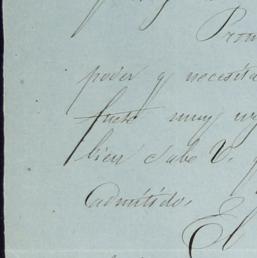 Prom
poder y necesita
fuese muy ur
bien sabe V. q
admitido.
El